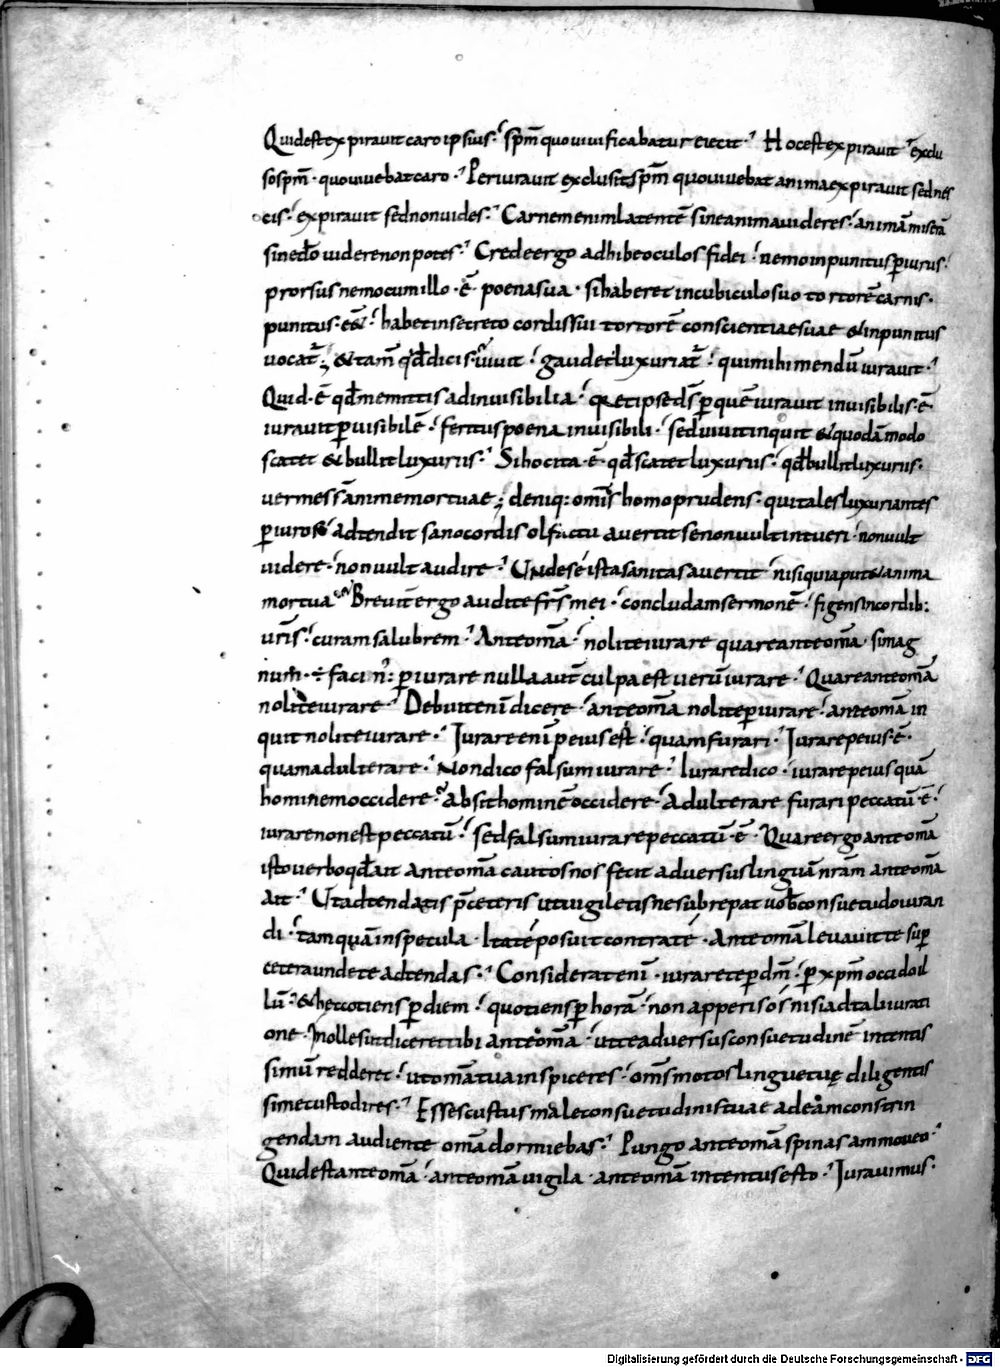 Quid est expiravit caro ipsius · sp̄m quo vivificabatur eiecit · Hoc est expiravit · exclu
so sp̄m · quo vivebat caro · Periuravit exclusit sp̄m quo vivebat anima expiravit sed nes
cis · expiravit sed non vides · Carnem enim latentē sine anima videres · animā miserā
sine dō videre non potes · Crede ergo adhibe oculos fidei · nemo inpunitus p̄iurus ·
prorsus nemo cum illo · ē · poena sua · si haberet in cubiculo suo tortorē carnis ·
punitus · eēt · habet in secreto cordis sui tortorē conscientiae suae & inpunitus
vocat̄ ; & tam̄ qđ dicis · vivit · gaudet luxuriat̄ · qui mihi mendū iuravit ·
Quid · ē · qđ me mittis ad invisibilia · q̄ et ipse d̄s p̄ quē iuravit invisibilis · ē ·
iuravit p̄ visibilē · feritus poena invisibili · sed vivit inquit & quodāmodo
scatet & bullit luxuriis · Si hoc ita · ē · qđ scatet luxuriis · qđ bullit luxuriis ·
vermes s̄ animae mortuae ; deniq: om̄is homo prudens · qui tales luxuriantes
p̄iuros adtendit sano cordis olfactu avertit se non vult intueri · non vult
videre · non vult audire · Unde sē ista sanitas avertit · nisi quia putet anima
mortua Brevit̄ ergo audite fr̄s mei · concludam sermonē · figens in cordib:
vr̄is · curam salubrem · Ante om̄a · nolite iurare quare ante om̄a · si mag
num · ÷ faci n̄ : p̄iurare nulla aut̄ culpa est verū iurare · Quare ante om̄a
nolite iurare · Debuit enī dicere · ante om̄a nolite p̄iurare · ante om̄a in
quit nolite iurare · Iurare enī peius est · quam furari · Iurare peius · ē ·
quam adulterare · Non dico falsum iurare · Iurare dico · iurare peius quā
hominem occidere · Absit hominē occidere · Adulterare furari peccatū · ē ·
iurare non est peccatū · sed falsum iurare peccatū · ē · Quare ergo ante om̄a
isto verbo qđ ait ante om̄a cautos nos fecit adversus linguā nr̄am ante om̄a
ait · Ut adtendatis p̄ ceteris ut vigiletis ne subrepat vob̄ consuetudo iuran
di · tamquā in specula · Ita tē posuit contra tē · Ante om̄a levavit te sup̄
cetera unde te adtendas · Considerat enī · iurare te p̄ dm̄ · p̄ xp̄m occido il
lū · & hęc totiens p̄ diem · quotiens p̄ horā · non apperis os nisi ad tali iurati
one · Nolles ut diceret tibi ante om̄a · ut te adversus consuetudinē intentis
simū redderet · ut om̄a tua inspiceres · om̄s motos linguę tuę diligentis
sime custodires · Esses custus male consuetudinis tuae ad eām constrin
gendam audiente om̄a dormiebas · Pungo ante om̄a spinas ammoveo ·
Quid est ante om̄a · ante om̄a vigila · ante om̄a intentus esto · Iuravimus ·
Digitalisierung gefördert durch die Deutsche Forschungsgemeinschaft - DFG